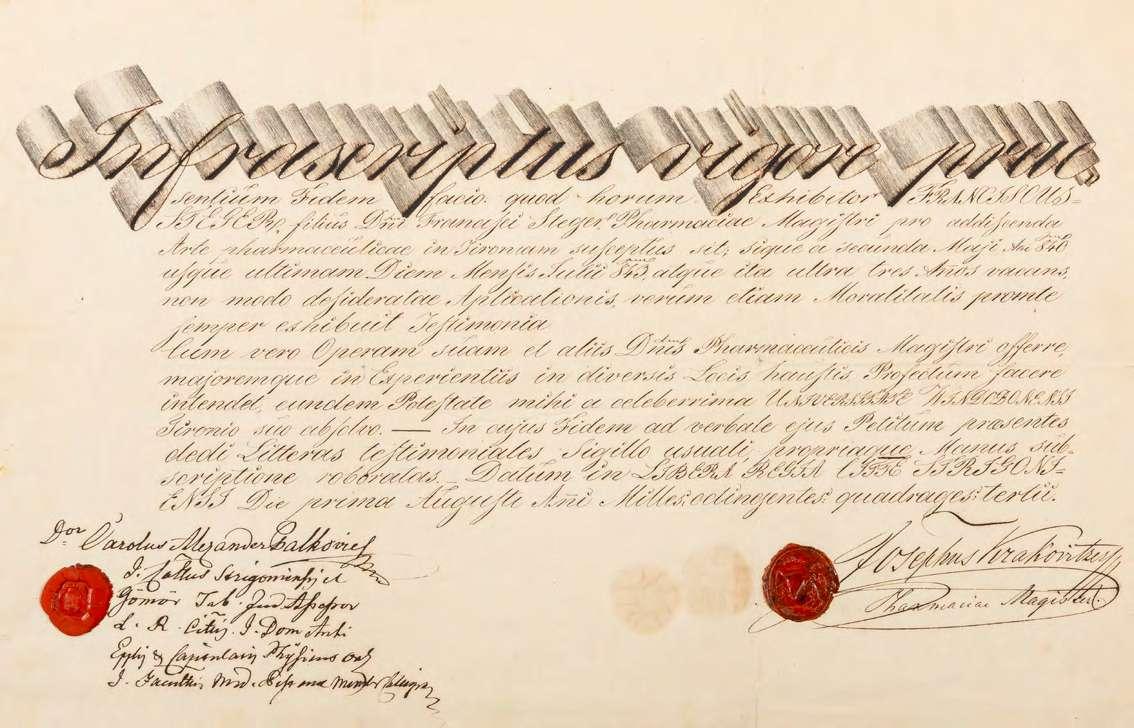 Infrascriptus vigore prae,
sentium Fidem facio quod horum Exhibitor FRANCISCUS
STEGER, filius Dni Francisci Steger Pharmaciae Magistri pro addiscenda
Arte pharmaceuticae in Tironem susceptus sit; sique a secunda Maji Ani 840
usque ultimam Diem Mensis Julii 843, atque ita ultra tres Anos vacans,
non modo desideratae Aplicationis, verum etiam Moralitatis promte
semper exhibuit Testimonia
Cum vero Operam suam et aliis Dnis Pharmaceuticis Magistri offerre,
majoremque in Experientiis in diversis Locis haustis Profectum facere
intendet, eundem Potestate mihi a celeberrima UNIVERSITATE VINDOBONENSI
Tironio suo absolvo. — In cujus Fidem ad verbale ejus Petitum praesentes
dedi Litteras testimoniales Sigillo usuali, propriaque Manus sub-
scriptione roboratas. Datum in LIBERA REGIA CITTE STRIGONI-
ENSI Die prima Augusti Ani Milles: octingentes: quadrages: tertii.
Dor Carolus Alexander Palkovics
I. Cottus Strigoniensis et
Gömör Tab. Jud Assessor
L. R. Cittis I. Dom Anti
Physicus
I. Facultis Med.
Josephus Krakovitzer
Pharmaciae Magister.